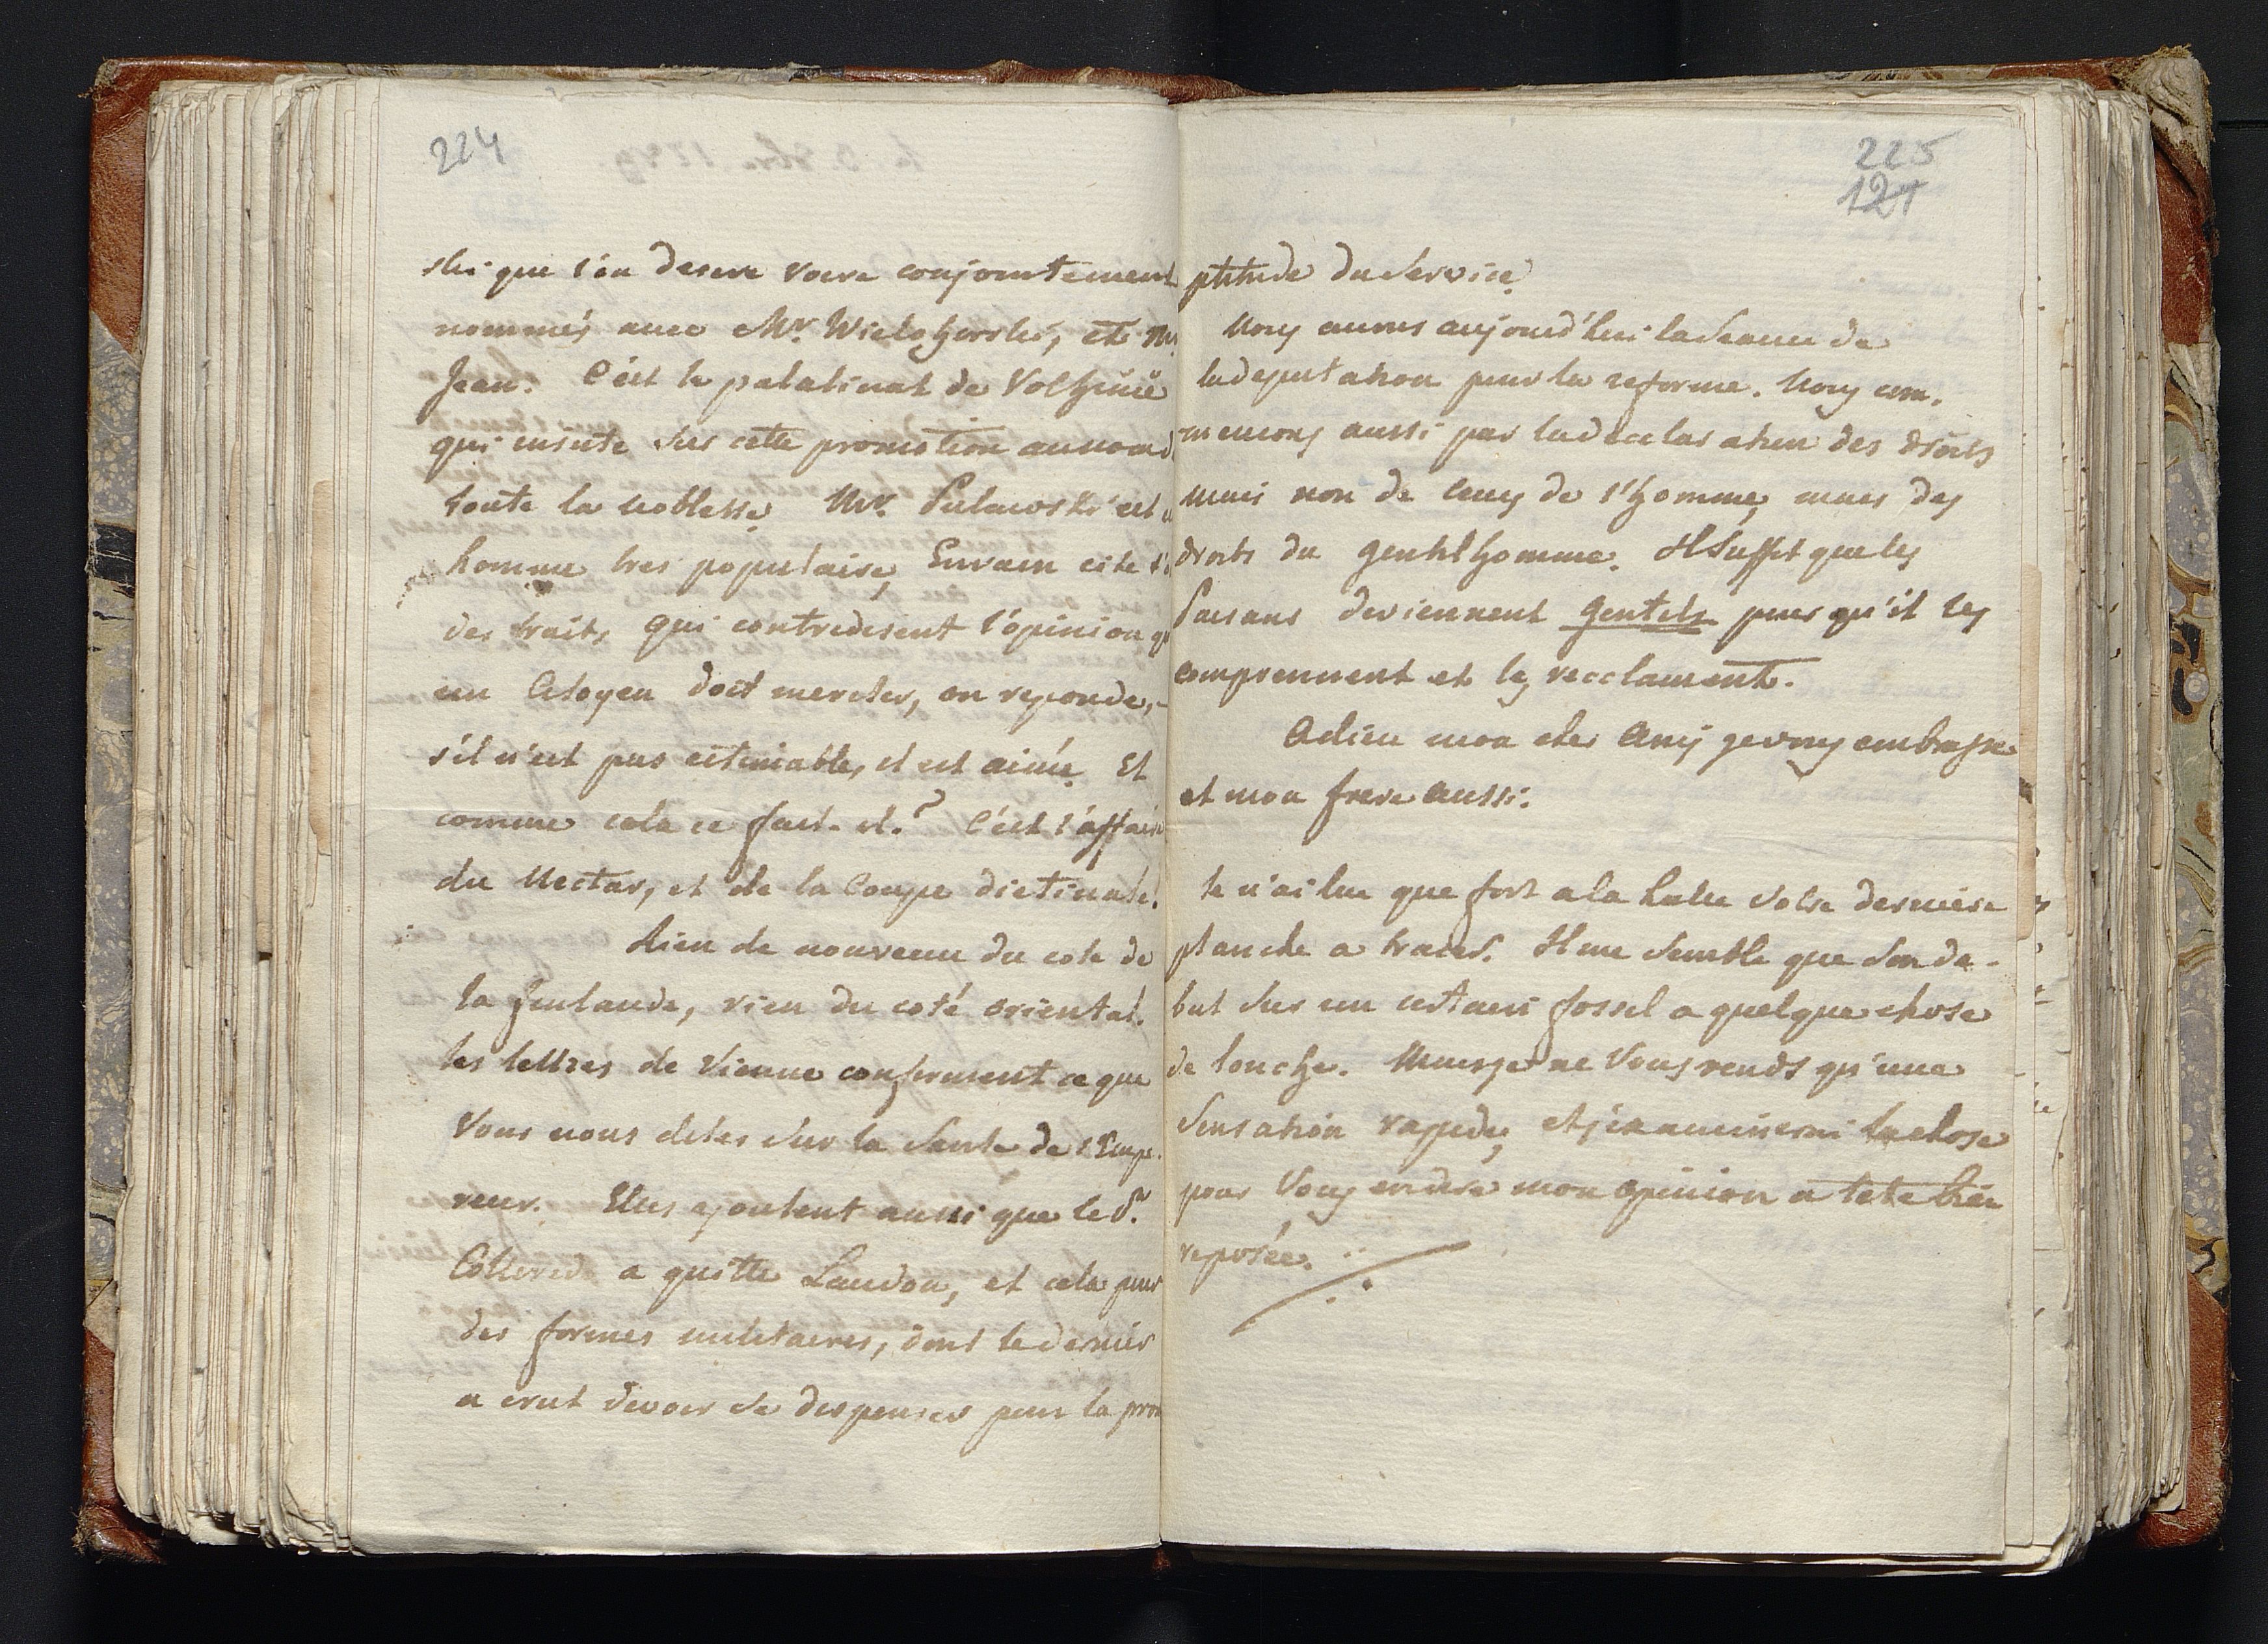 224
ski que l'on desire voire conjointement
nommés avec Mr. Wielohorski, et Mr.
Jean. C'est le palatinat de Volhinie
qui insiste sur cette promotion au nom d
toute la noblesse. Mr. Pulawski est u
homme tres populaire, Envain cite t'o
des traits qui contredisent l'opinion qu
un Citoyen doit meriter, on reponde,-
s'il n'est pas estimable, il est aimé. Et
comme cela ce fait-il.? C'est l'affaire
du Nectar, et de la Coupe dietinale.
Rien de nouveau du coté de
la finlande, rien du coté oriental.
les lettres de Vienne confirment ce que
Vous nous dites sur la Santé de l'Empe.
reur. Elles ajoutent aussi que le
Colloredo a quitte Laudon, et cela pour
des formes militaires, dont le dernier
a crut devoir se dispenser pour la prom
225
121
ptitude du Service.
Nous avons aujourd'hui la Seance de
la deputation pour la reforme. Nous com.
mencons aussi par la declaration des droits
mais non de ceux de l'homme, mais des
droits du gentilhomme. Il Suffit que les
Paisans deviennent gentils pour qu'il les
comprennent et les recclament.
Adieu mon cher Amij je vous embrasse
et mon frere aussi.
Je n'ai lue que fort a la hate Votre derniere
planche a tracer. Il me Semble que Son de-
but sur un certain fossel a quelque chose
de louche. Mais je ne Vous rends qu'une
Sensation rapide, et j'examinerai la chose
pour Vous ecrire mon opinion a tete bien
reposée.